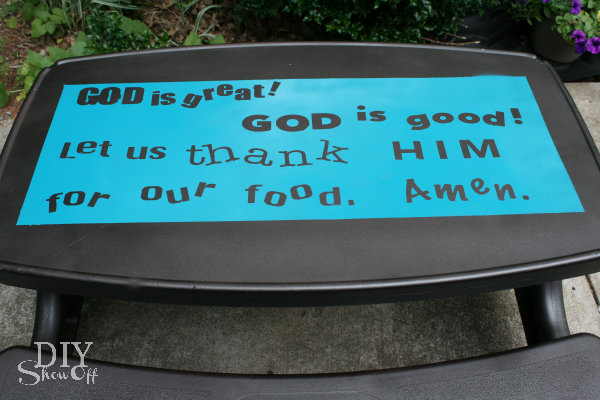 GOD is great!
GOD is good!
Let us thank HIM
for our food. Amen.
DIY
Show Off